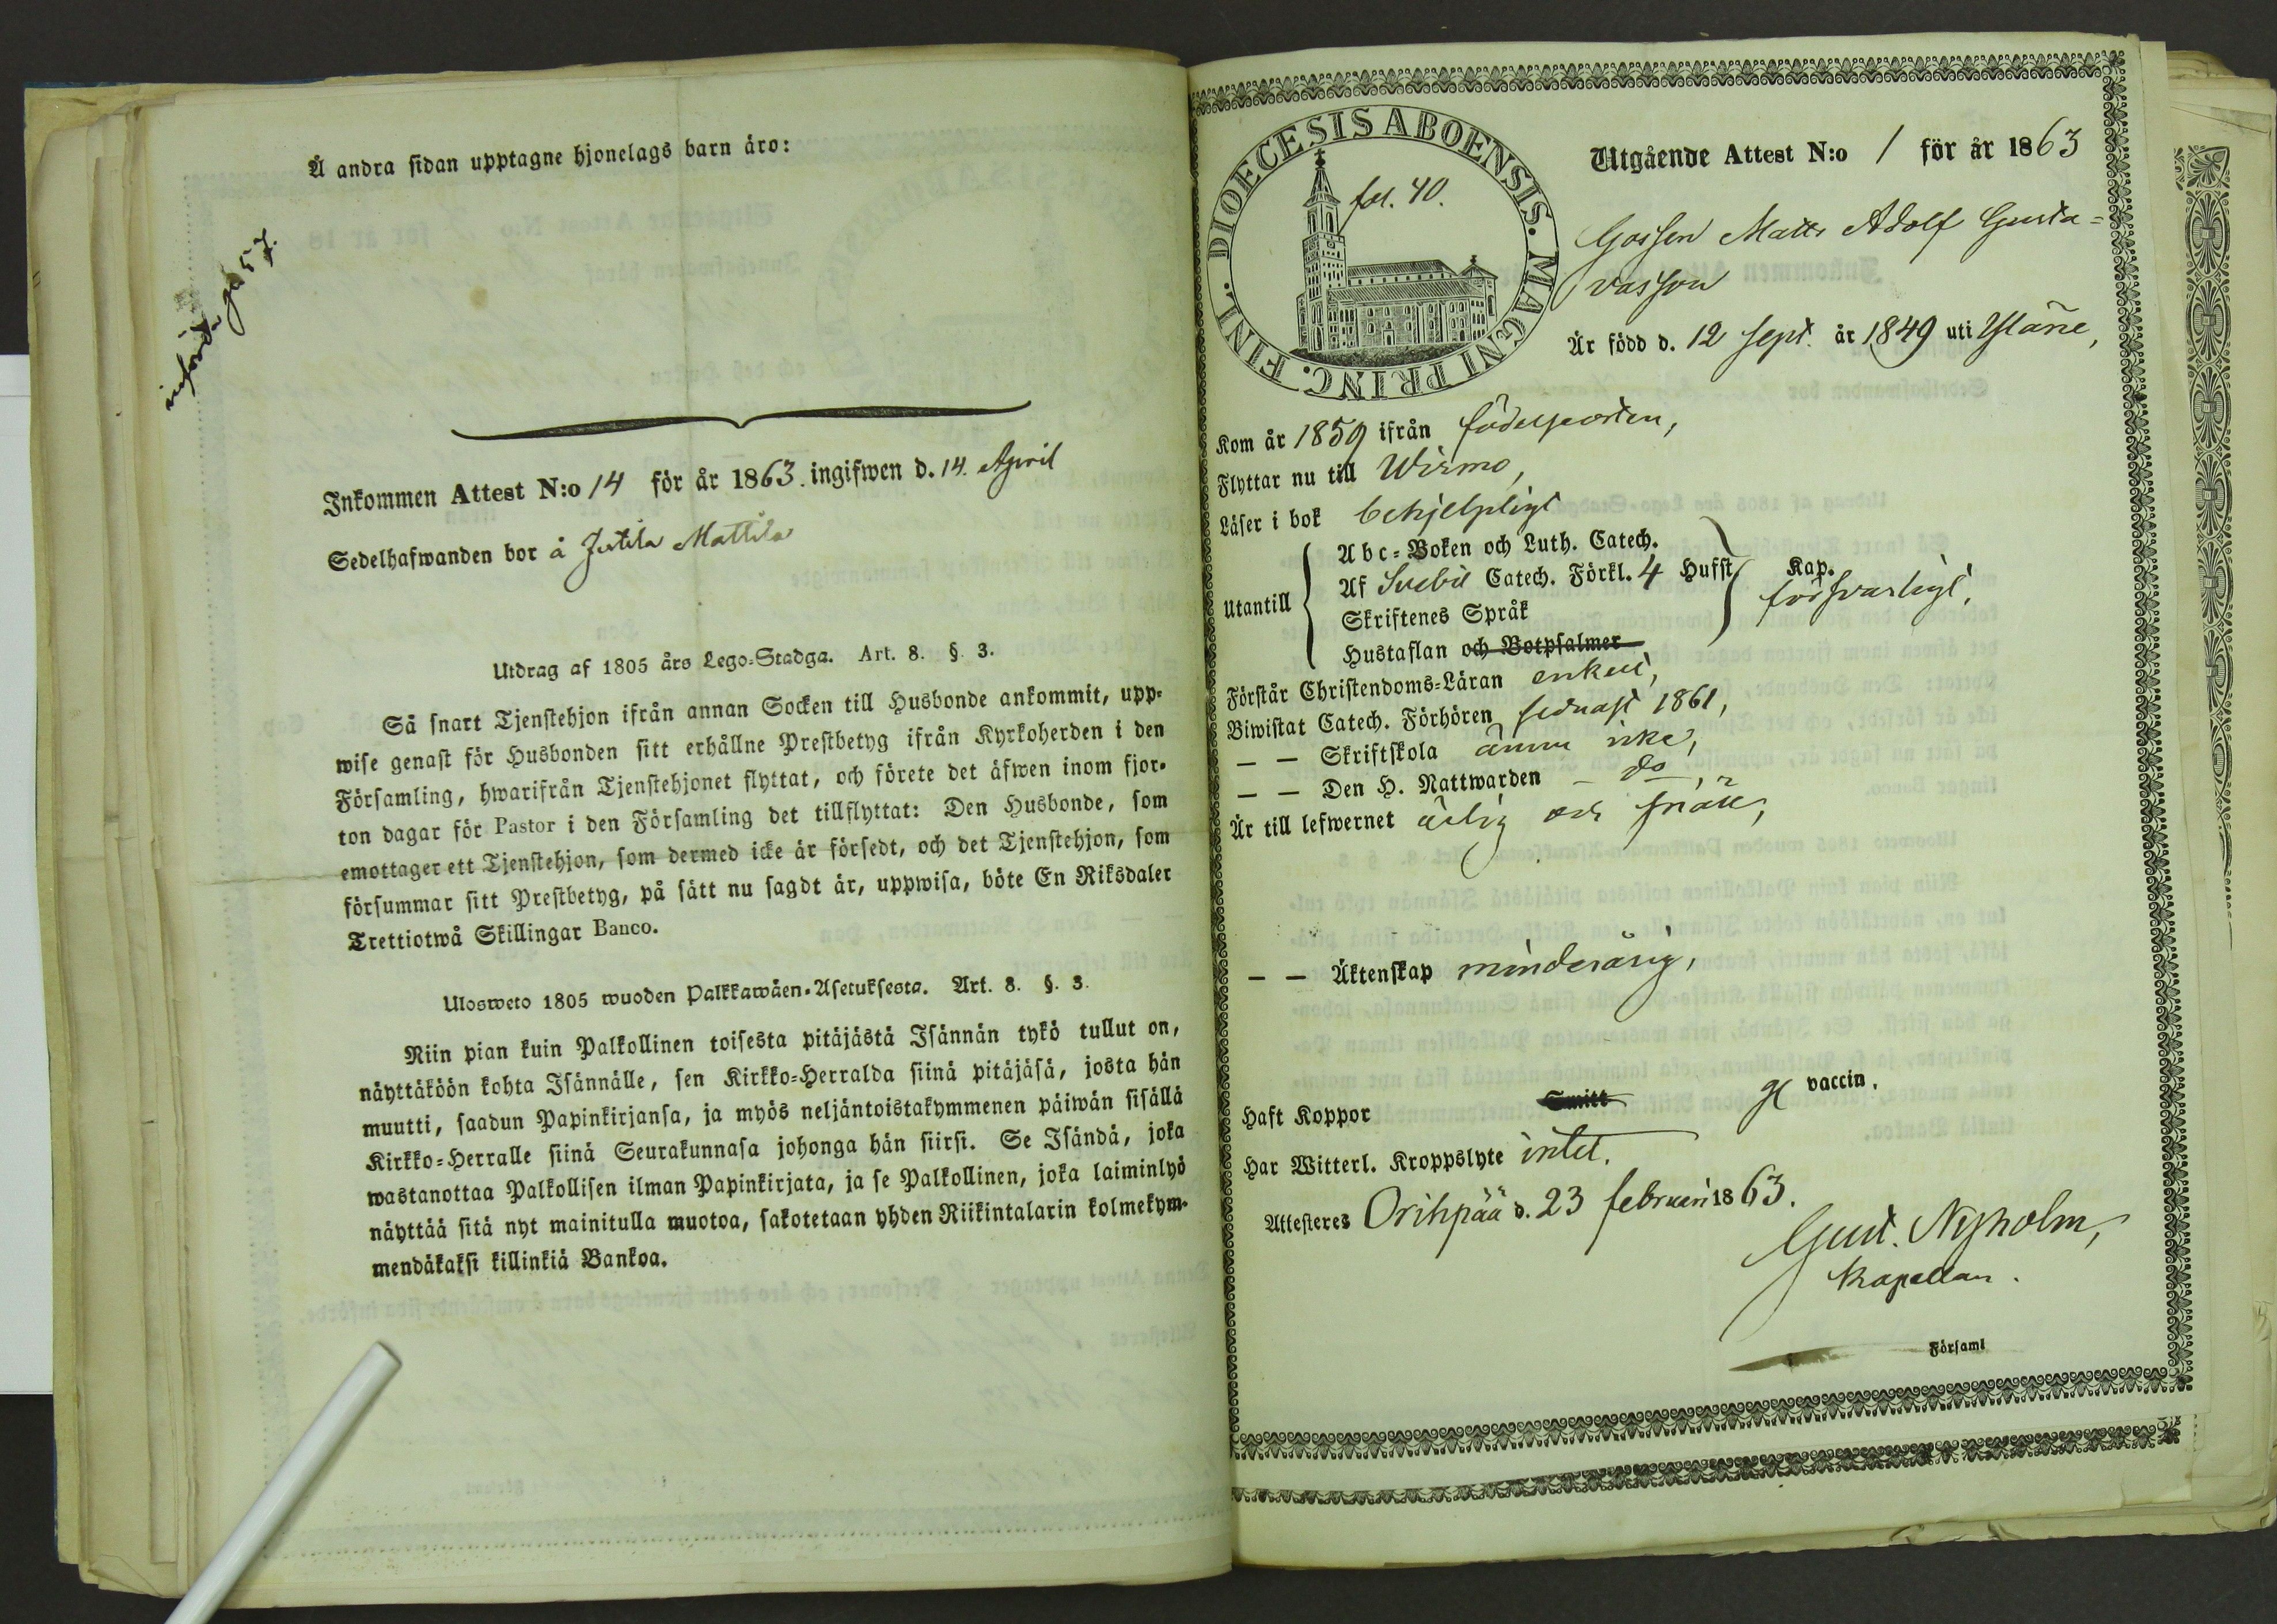 Å andra sidan upptagne hjonelags barn äro:
införd pag 57.
Inkommen Attest N:o 14 för år 1863. ingifwen d. 14. April
Sedelhafwanden bor å Jutila Mattila
Utdrag af 1805 års Lego-Stadga. Art. 8. §. 3.
Så snart Tjenstehjon ifrån annan Socken till Husbonde ankommit, upp-
wise genast för Husbonden sitt erhållne Prestbetyg ifrån Kyrkoherden i den
Församling, hwarifrån Tjenstehjonet flyttat, och förete det äfwen inom fjor-
ton dagar för Pastor i den Församling det tillflyttat: Den Husbonde, som
emottager ett Tjenstehjon, som dermed icke är försedt, och det Tjenstehjon, som
försummar sitt Prestbetyg, på sätt nu sagdt är, uppwisa, böte En Riksdaler
Trettiotwå Skillingar Banco.
Ulosweto 1805 wuoden Palkkawäen-Asetuksesta. Art. 8. §. 3.
Niin pian kuin Palkollinen toisesta pitäjästä Isännän tykö tullut on,
näyttäköön kohta Isännälle, sen Kirkko-Herralda siinä pitäjäsä, josta hän
muutti, saadun Papinkirjansa, ja myös neljäntoistakymmenen päiwän sisällä
Kirkko-Herralle siinä Seurakunnasa johonga hän siirsi. Se Isändä, joka
wastanottaa Palkollisen ilman Papinkirjata, ja se Palkollinen, joka laiminlyö
näyttää sitä nyt mainitulla muotoa, sakotetaan yhden Riikintalarin kolmekym-
mendäkaksi killinkiä Bankoa.
DIOECESIS ABOENSIS. MAGNI PRINC. FINL.
fol. 40.
Utgående Attest N:o 1 för år 1863
Gossen Matts Adolf Gusta-
vasson
Är född d. 12 Sept. år 1849 uti Yläne,
Kom år 1859 ifrån födelseorten,
Flyttar nu till Wirmo,
Läser i bok behjelpligt
Utantill
Abc-Boken och Luth. Catech.
Af Svebil Catech. Förkl. 4 Hufst Kap.
Skriftenes Språk
Hustaflan och Botpsalmer
försvarligt,
Förstår Christendoms-Läran enkelt,
Biwistat Catech. Förhören sednast 1861,
— — Skriftskola ännu icke,
— — Den H. Nattwarden — do,
Är till lefwernet ärlig och
— — Äktenskap minderårig,
Haft Koppor Smitt gl vaccin.
Har Witterl. Kroppslyte intet.
Attesteres Orihpää d. 23 februari 1863.
Gust. Nyholm,
Kapellan.
Församl